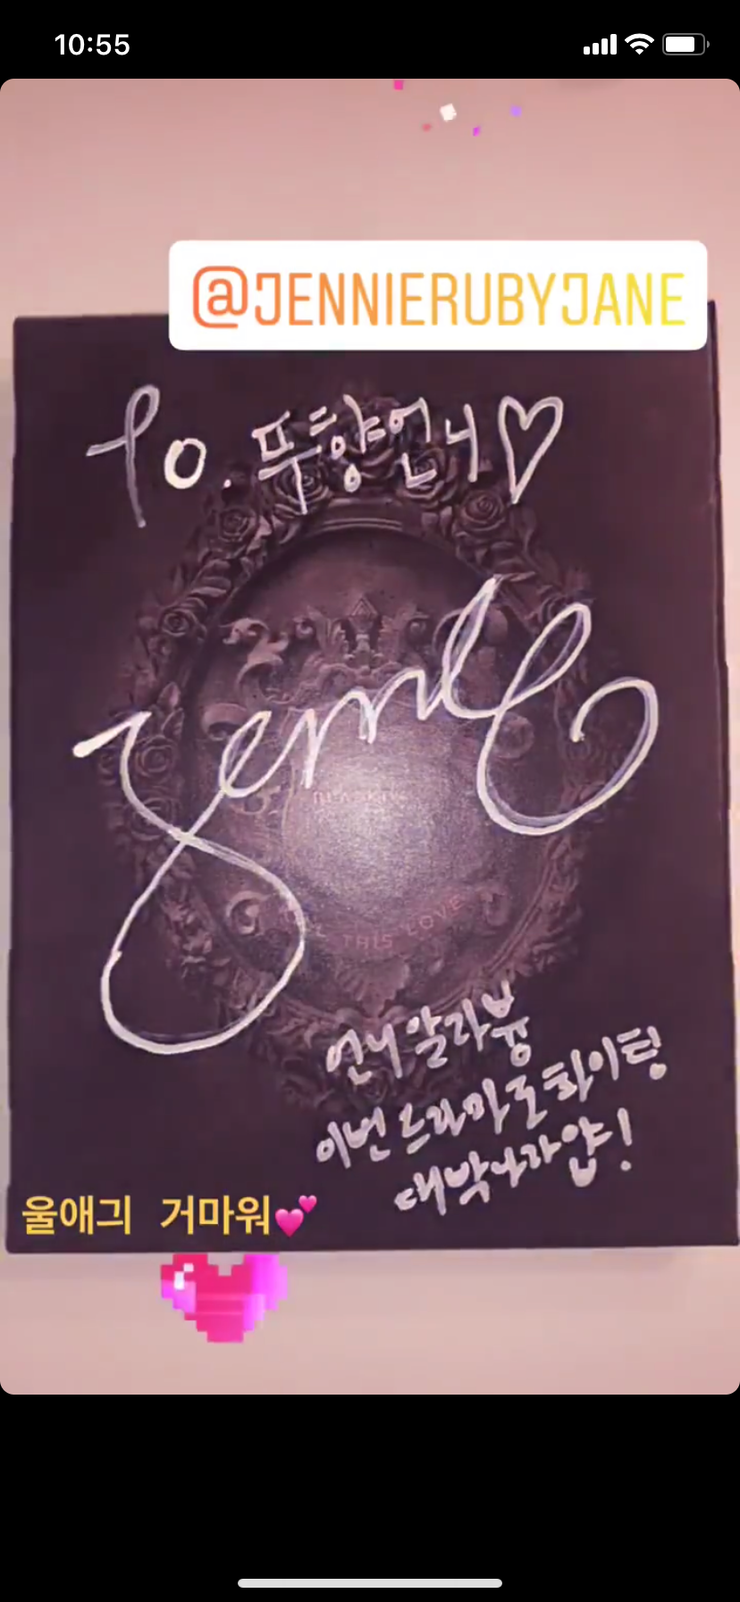 10:55
@JENNIERUBYJANE
To. 뚜량언니♡
Jennie
BLACKPINK
KILL THIS LOVE
언니 알라븅
이번 드라마로 화이팅
대박나라얍!
울애긔 거마워💕